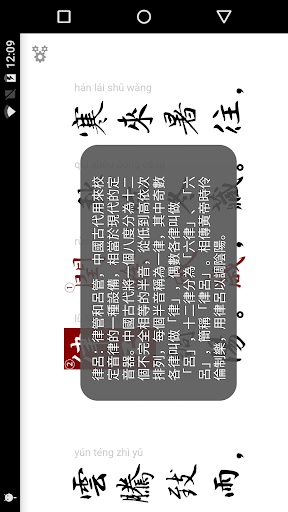 12:09
hán lái shǔ wǎng
寒來暑往，
藏。
①
歲，
②
陽。
律呂：律管和呂管，中國古代用來校
定音律的一種設備，相當於現代的定
音器。中國古代將一個八度分為十二
個不完全相等的半音，從低到高依次
排列，每個半音稱為一律，其中奇數
各律叫做「律」，偶數各律叫做
「呂」，十二律分為「六律」、「六
呂」，簡稱「律呂」。相傳黃帝時伶
倫制樂，用律呂以調陰陽。
yún téng zhì yǔ
雲騰致雨，